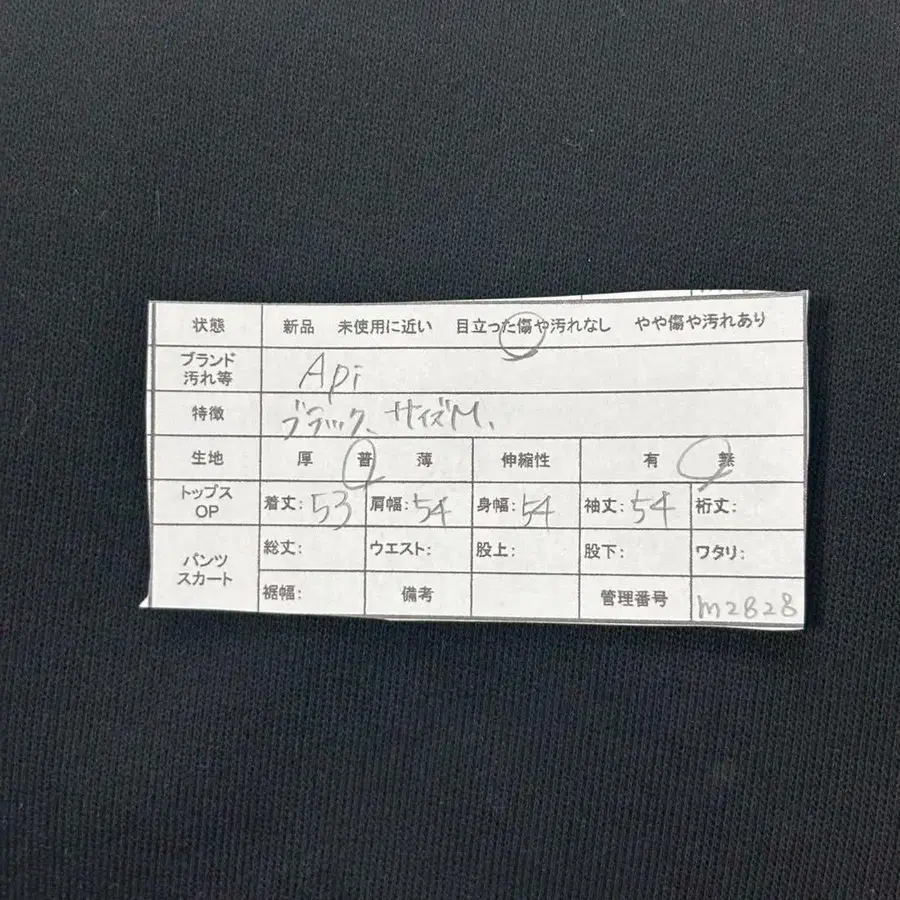 状態 新品 未使用に近い 目立った傷や汚れなし やや傷や汚れあり
ブランド
汚れ等 Api
特徴 ブラック、サイズM、
生地 厚 普 薄 伸縮性 有 無
トップス
OP 着丈:53 肩幅:54 身幅:54 袖丈:54 裄丈:
パンツ
スカート 総丈: ウエスト: 股上: 股下: ワタリ:
裾幅: 備考 管理番号 m2828